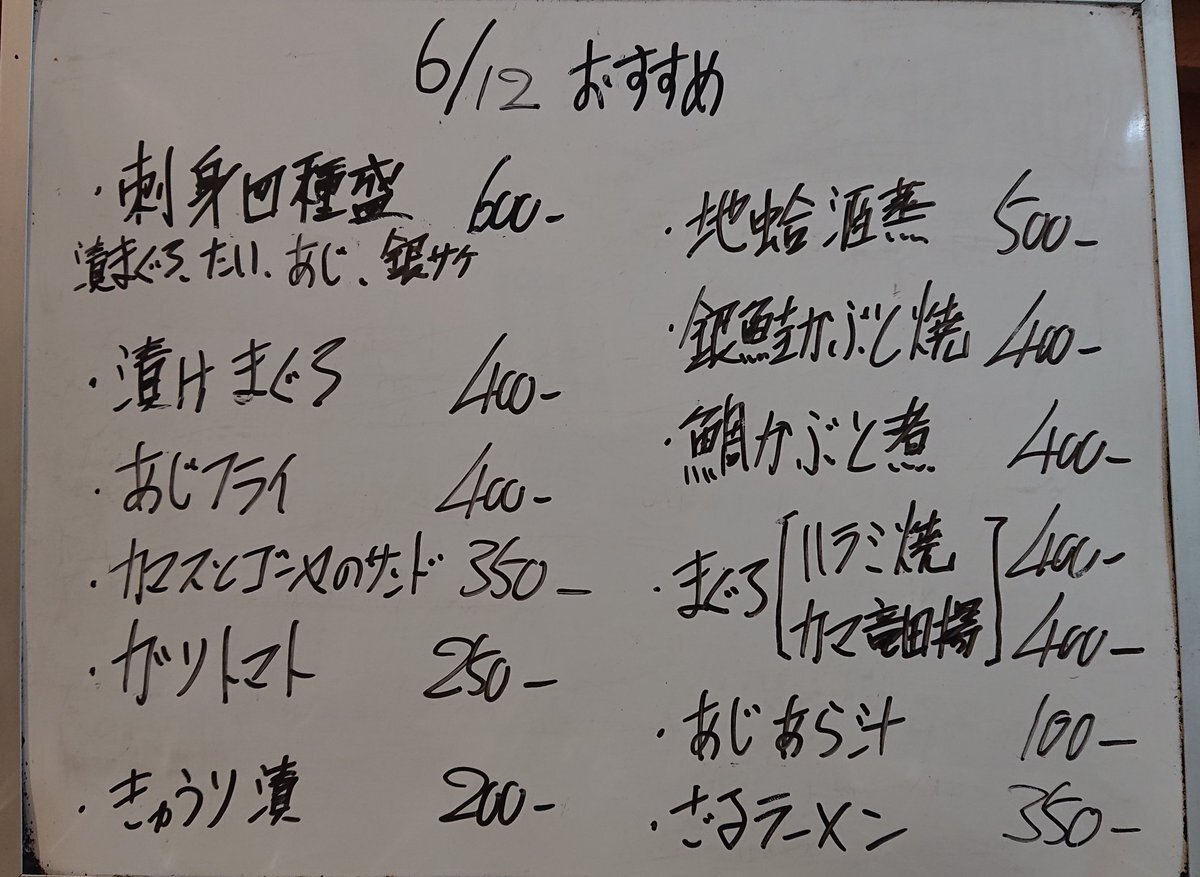 6/12 おすすめ
・刺身四種盛 600-
漬まぐろ、たい、あじ、銀サケ
・漬けまぐろ 400-
・あじフライ 400-
・カマスとゴーヤのサンド 350-
・ガリトマト 250-
・きゅうり漬 200-
・地蛤酒蒸 500-
・銀鮭かぶと焼 400-
・鯛かぶと煮 400-
・まぐろ[ハラミ焼]400-
[カマ竜田揚]400-
・あじあら汁 100-
・ざるラーメン 350-